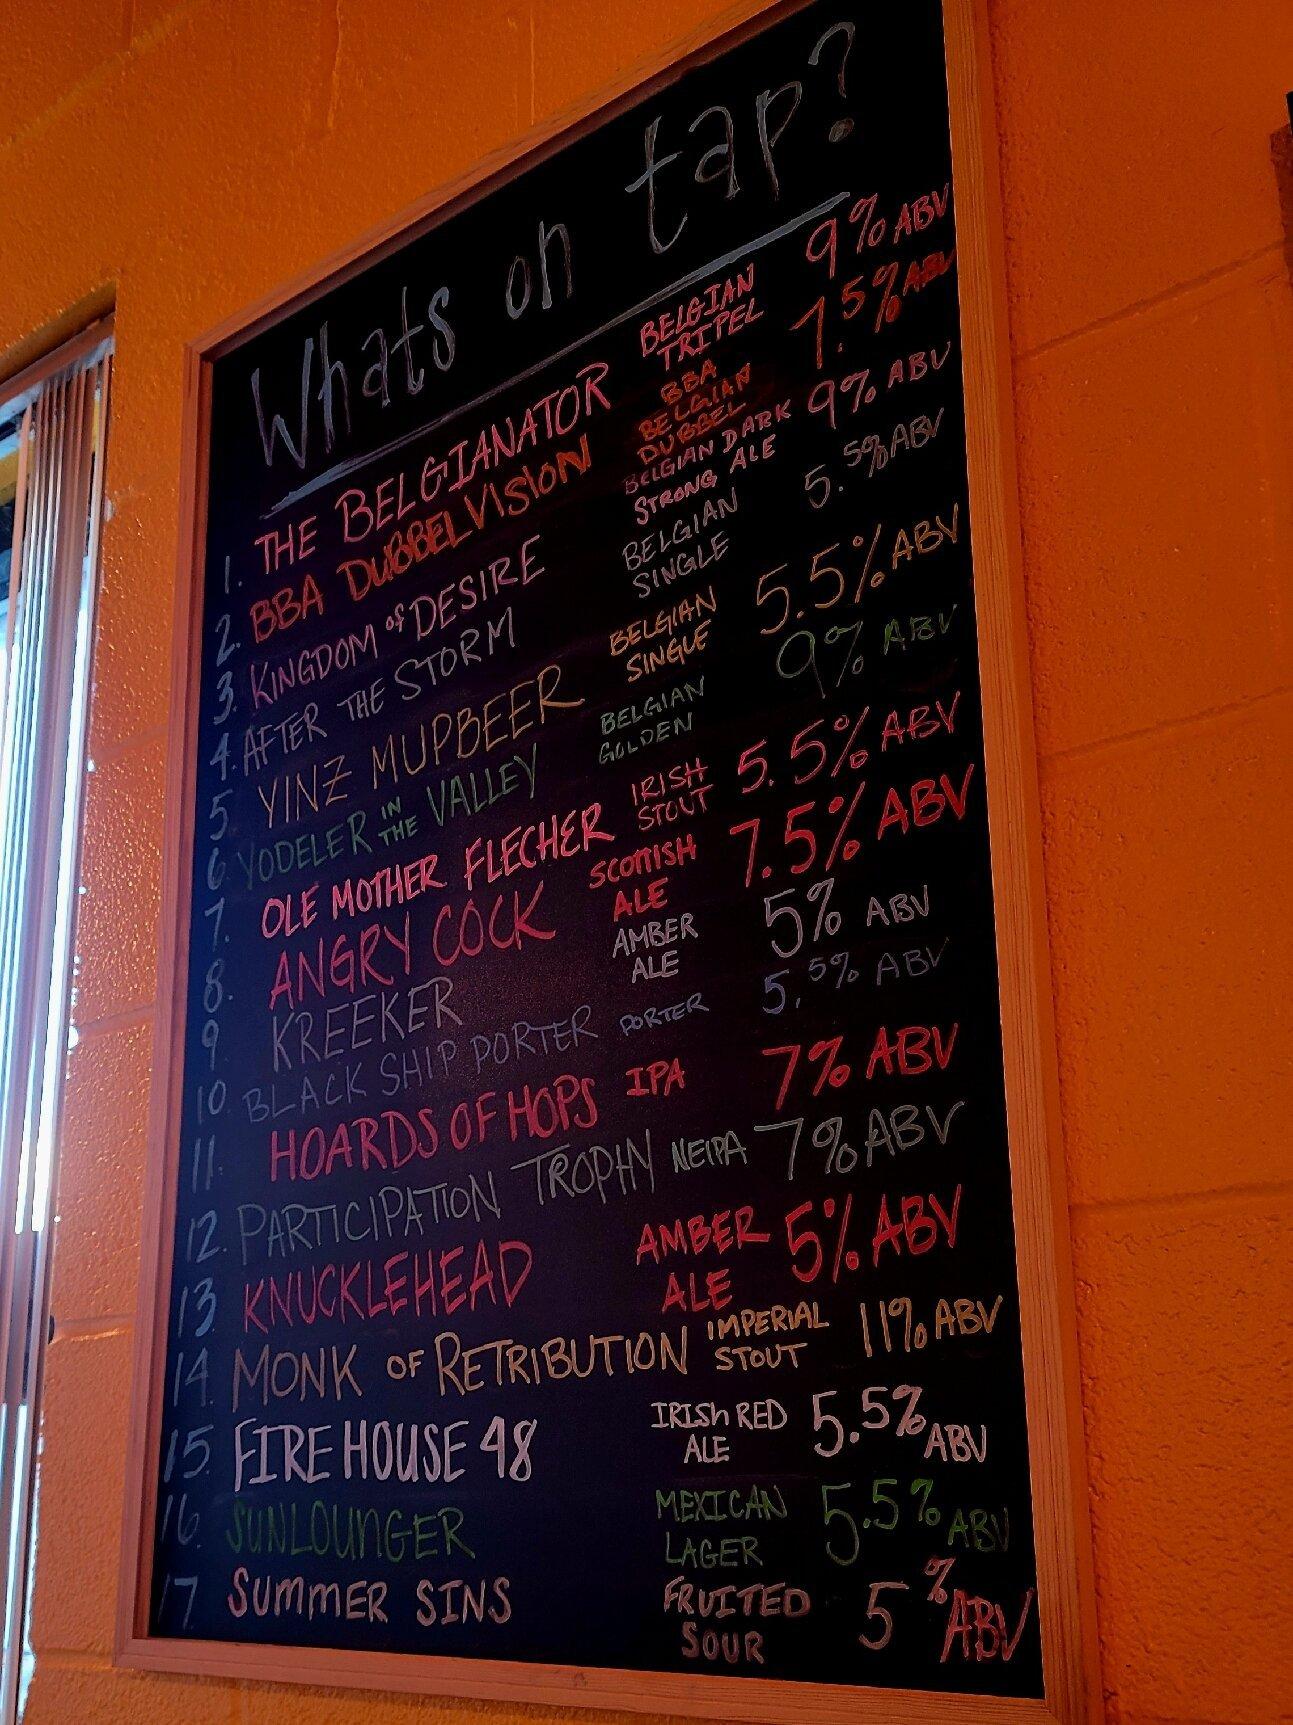 Whats on tap?
1. THE BELGIANATOR BELGIAN TRIPEL 9% ABV
2. BBA DUBBELVISION BBA BELGIAN DUBBEL 7.5% ABV
3. KINGDOM of DESIRE BELGIAN DARK STRONG ALE 9% ABV
4. AFTER THE STORM BELGIAN SINGLE 5.5% ABV
5. YINZ MUPBEER BELGIAN SINGLE 5.5% ABV
6. YODELER IN THE VALLEY BELGIAN GOLDEN 9% ABV
7. OLE MOTHER FLECHER IRISH STOUT 5.5% ABV
8. ANGRY COCK SCOTTISH ALE 7.5% ABV
9. KREEKER AMBER ALE 5% ABV
10. BLACK SHIP PORTER PORTER 5.5% ABV
11. HOARDS OF HOPS IPA 7% ABV
12. PARTICIPATION TROPHY NEIPA 7% ABV
13. KNUCKLEHEAD AMBER ALE 5% ABV
14. MONK OF RETRIBUTION IMPERIAL STOUT 11% ABV
15. FIRE HOUSE 48 IRISh RED ALE 5.5% ABV
16. SUNLOUNGER MEXICAN LAGER 5.5% ABV
17. SUMMER SINS FRUITED SOUR 5% ABV